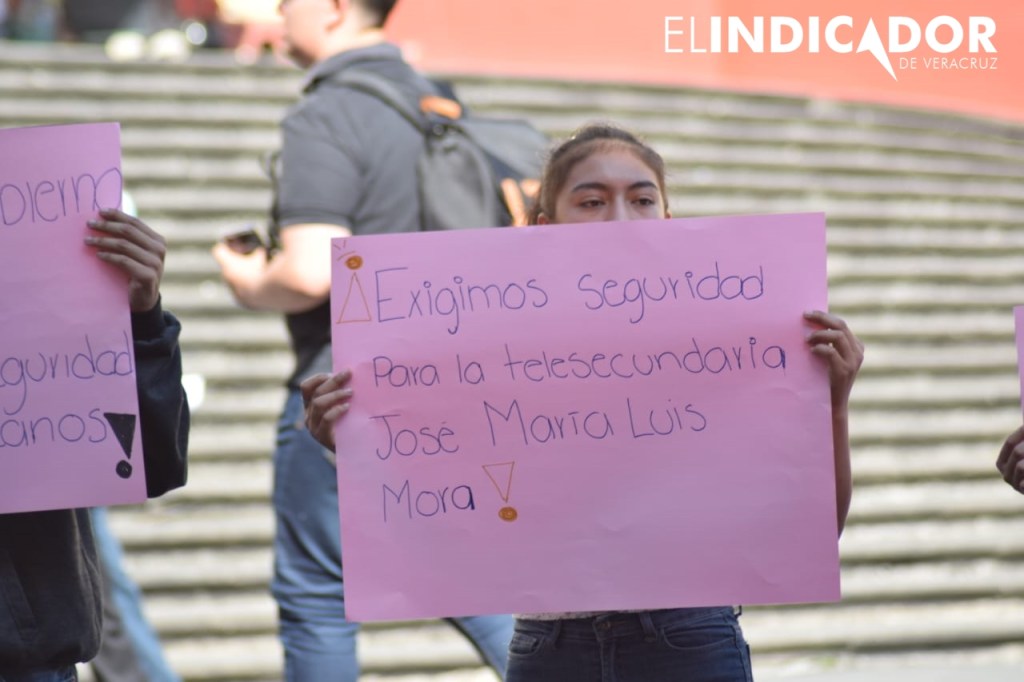 ELINDICADOR
DE VERACRUZ
¡Exigimos seguridad
Para la telesecundaria
José María Luis
Mora!